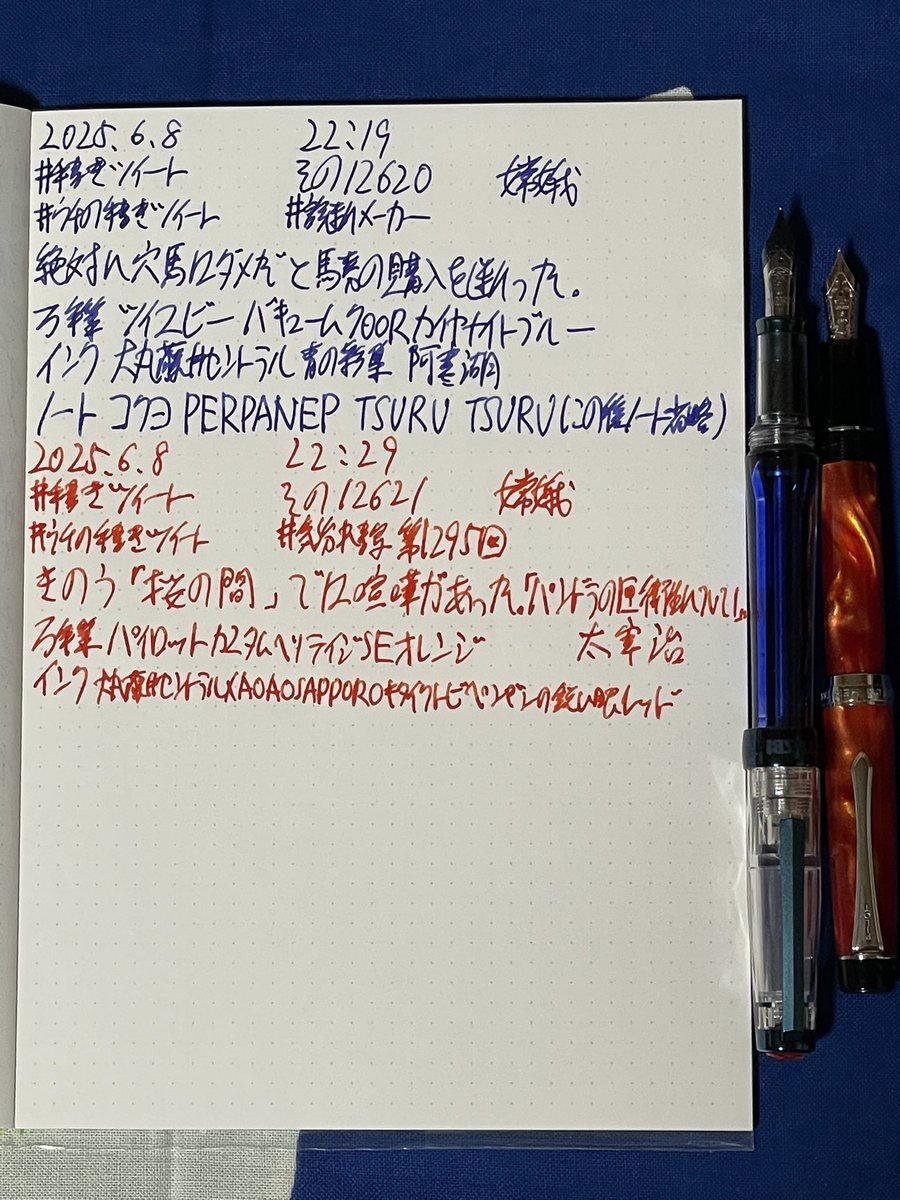 2025.6.8 22:19
#手書きツイート その12620 嫦娥
#ウチの手書きツイート #診断メーカー
絶対に穴馬はダメだと馬券の購入を迷った。
万年筆 ツイスビー バキューム700Rカイヤナイトブルー
インク 大丸藤井セントラル 青の彩集 阿寒湖
ノート コクヨ PERPANEP TSURU TSURU(この後ノート省略)
2025.6.8 22:29
#手書きツイート その12621 嫦娥
#ウチの手書きツイート 第1295回
きのう「桜の間」では喧嘩があった。「パンドラの匣
万年筆 パイロットカスタムヘリテイジSEオレンジ 太宰治
インク 大丸藤井セントラル×AOAOSAPPOROキタイワトビペンギンの鋭い眼レッド